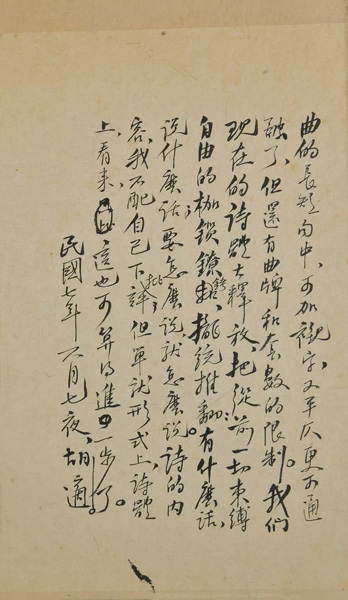 曲的長短句中,可加襯字,又平仄更可通
融了,但還有曲牌和套數的限制。我們
現在的詩體大釋放,把從前一切束縛
自由的枷鎖鐐銬,攏統推翻:有什麼話,
说什麼話;要怎麼說就怎麼說。詩的内
容,我不配自己下批評,但單就形式上詩體
上看来,這也可算得進一步了。
民國七年六月七夜,胡適。